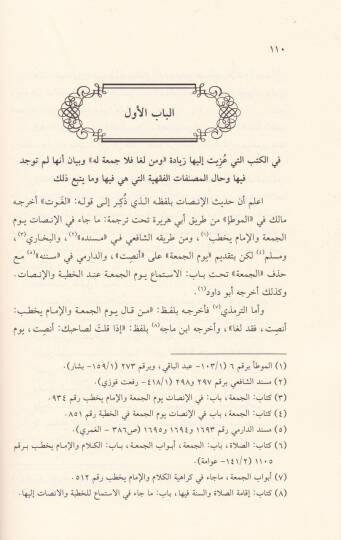 ١١٠
الباب الأول
في الكتب التي عُزِيت إليها زيادة «ومن لغا فلا جمعة له» وبيان أنها لم توجد
فيها وحال المصنفات الفقهية التي هي فيها وما يتبع ذلك
اعلم أن حديث الإنصات بلفظه الذي ذُكِر إلى قوله: «لغوت» أخرجه
مالك في «الموطإ» من طريق أبي هريرة تحت ترجمة: ما جاء في الإنصات يوم
الجمعة والإمام يخطب(١)، ومن طريقه الشافعي في «مسنده»(٢)، والبخاري(٣)،
ومسلم(٤) لكن بتقديم «يوم الجمعة» على «أنصِت»، والدارمي في «سننه»(٥) مع
حذف «الجمعة» تحت باب: الاستماع يوم الجمعة عند الخطبة والإنصات.
وكذلك أخرجه أبو داود(٦).
وأما الترمذي(٧) فأخرجه بلفظ: «من قال يوم الجمعة والإمام يخطب:
أنصِت، فقد لغا»، وأخرجه ابن ماجه(٨) بلفظ: «إذا قلتَ لصاحبك: أنصِت، يوم
(١) الموطأ برقم ٦ (١/١٠٣- عبد الباقي، وبرقم ٢٧٣ (١/١٥٩- بشار).
(٢) مسند الشافعي برقم ٢٩٧ و٢٩٨ (١/٤١٨- رفعت فوزي).
(٣) كتاب: الجمعة، باب: في الإنصات يوم الجمعة والإمام يخطب رقم ٩٣٤.
(٤) كتاب: الجمعة، باب: في الإنصات يوم الجمعة في الخطبة رقم ٨٥١.
(٥) مسند الدارمي رقم ١٦٩٣ و١٦٩٤ و١٦٩٥ (ص٣٨٦ - الغمري).
(٦) كتاب: الصلاة، باب: الجمعة، أبواب الجمعة، باب: الكلام والإمام يخطب برقم
١١٠٥ (٢/١٤١- عوامة).
(٧) أبواب الجمعة، ماجاء في كراهية الكلام والإمام يخطب رقم ٥١٢.
(٨) كتاب: إقامة الصلاة والسنة فيها، باب: ما جاء في الاستماع للخطبة والانصات إليها.